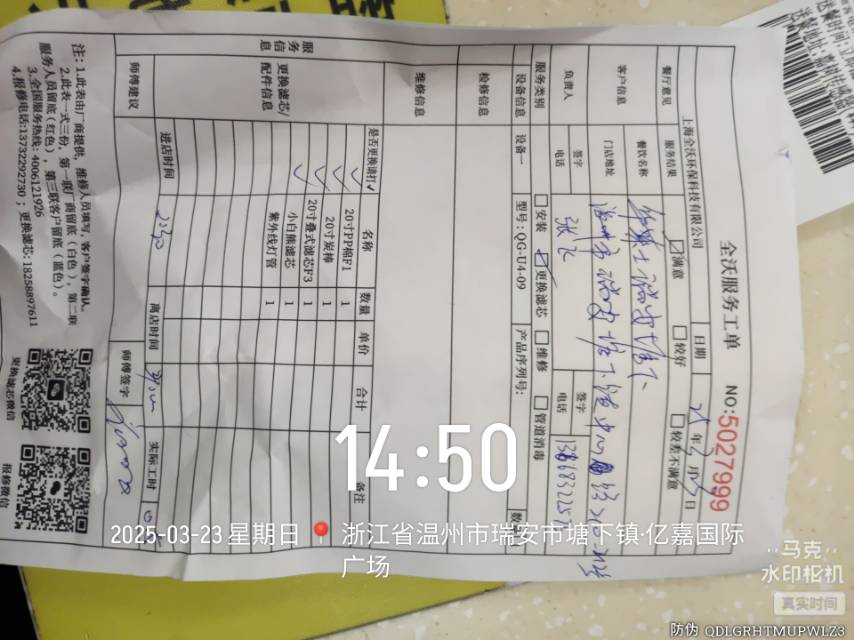 全沃服务工单
NO:5027999
上海全沃环保科技有限公司
日期
25年3月23日
餐厅意见
服务结果
满意
较好
较差不满意
客户信息
餐饮名称
门店地址
负责人
签字
张飞
签字
电话
电话
服务类别
安装
更换滤芯
维修
管道消毒
设备信息
设备一
型号:QG-U4-09
产品序列号:
检修信息
维修信息
服务信息
更换滤芯/配件信息
是否更换请打✓
名称
数量
单价
合计
备注
✓ 20寸PP棉F1 1
✓ 20寸炭棒 1
✓ 20寸叠式滤芯F3 1
小白熊滤芯 1
紫外线灯管 1
师傅建议
进店时间
离店时间
实际工时
师傅签字
注:1.此表由厂商提供,维修人员填写,客户签字确认。
2.此表一式三份,第一联厂商留底(白色),第二联
服务人员留底(红色),第三联客户留底(蓝色)。
3.全国服务热线:4006121926
4.报修电话:13732292730;更换滤芯:18258897611
更换滤芯微信
报修微信
14:50
2025-03-23 星期日 浙江省温州市瑞安市塘下镇·亿嘉国际
广场
马克
水印相机
真实时间
防伪 QDLGRHTMUPWLZ3